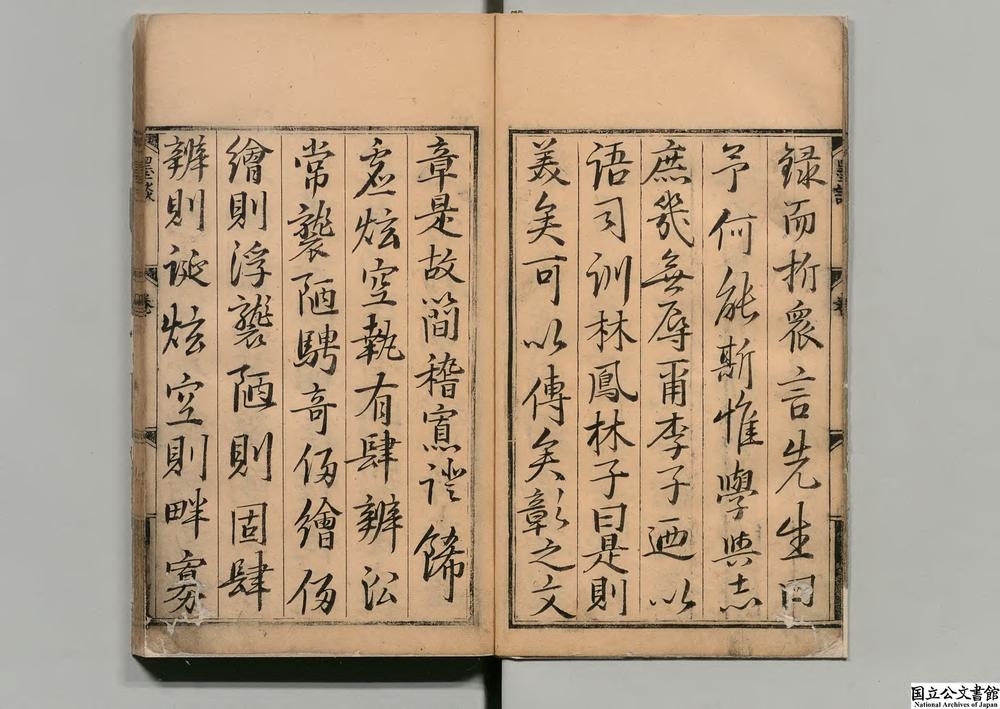 録而折衆言先生曰
予何能斯惟學與志
庶幾無辱爾李子迺以
語司訓林鳳林子曰是則
美矣可以傳矣彰之文
章是故簡稽寡證
虛炫空執有肆辨訟
常襲陋騁奇侈繪侈
繪則浮襲陋則固肆
辨則誕炫空則畔寡
墨談
國立公文書館
National Archives of Japan